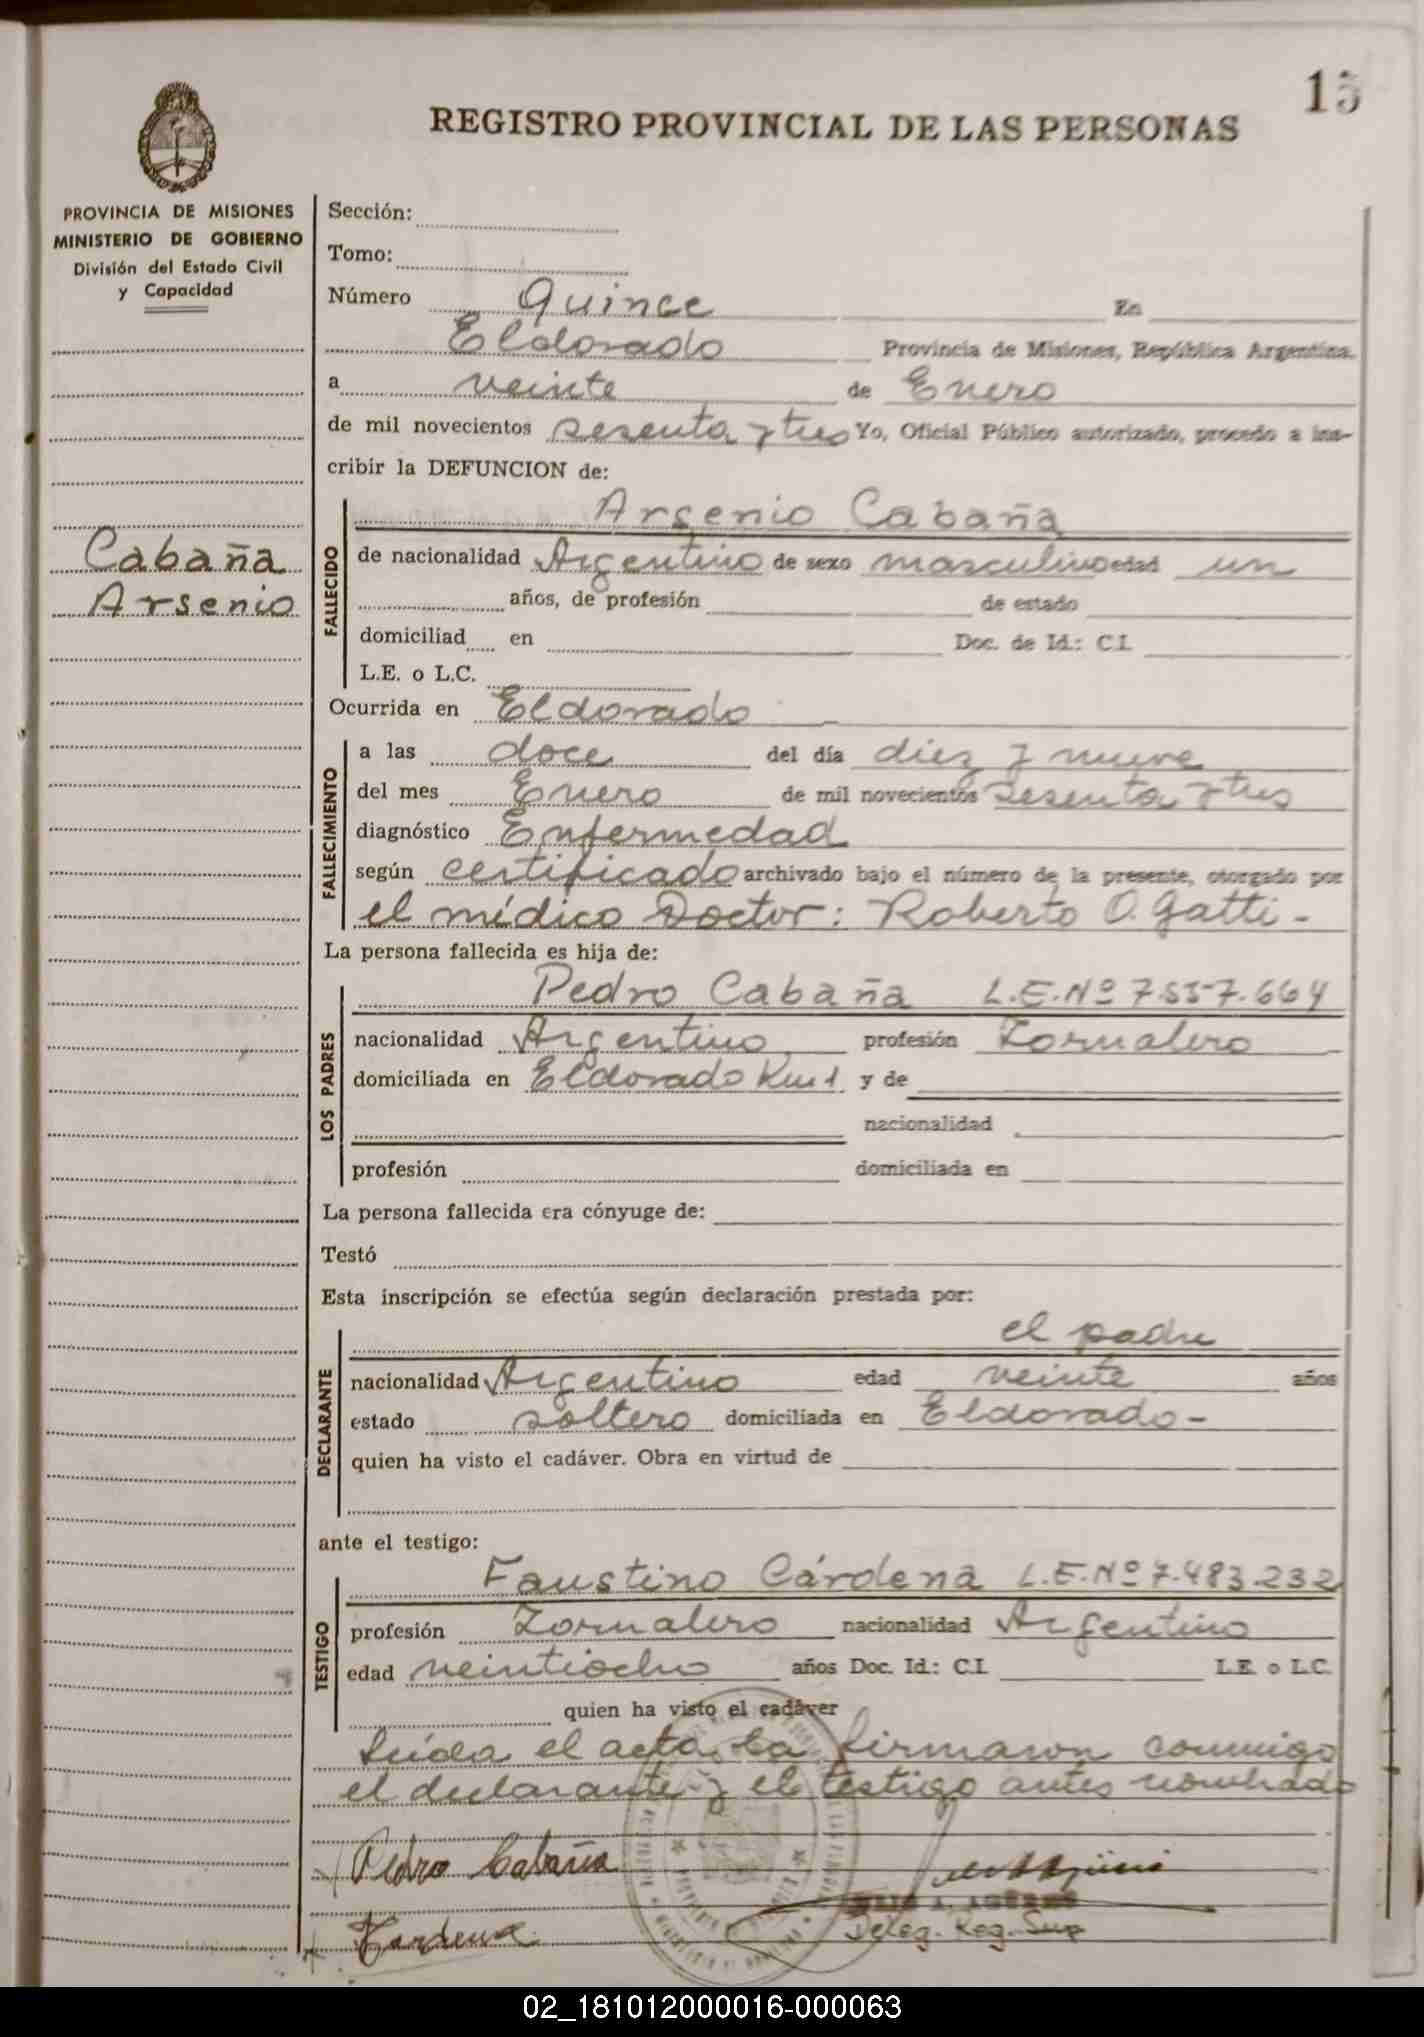 15
REGISTRO PROVINCIAL DE LAS PERSONAS
PROVINCIA DE MISIONES
MINISTERIO DE GOBIERNO
División del Estado Civil
y Capacidad
Cabaña
Arsenio
Sección:
Tomo:
Número Quince En
Eldorado Provincia de Misiones, República Argentina.
a veinte de Enero
de mil novecientos sesenta y tres Yo, Oficial Público autorizado, procedo a ins-
cribir la DEFUNCION de:
FALLECIDO
Arsenio Cabaña
de nacionalidad Argentino de sexo masculino edad un
años, de profesión de estado
domiciliad en Doc. de Id.: C.I.
L.E. o L.C.
Ocurrida en Eldorado
FALLECIMIENTO
a las doce del día diez y nueve
del mes Enero de mil novecientos sesenta y tres
diagnóstico Enfermedad
según certificado archivado bajo el número de la presente, otorgado por
el médico Doctor: Roberto O. Gatti -
La persona fallecida es hija de:
LOS PADRES
Pedro Cabaña L.E.Nº 7.557.664
nacionalidad Argentino profesión Jornalero
domiciliada en Eldorado Km 1 y de
nacionalidad
profesión domiciliada en
La persona fallecida era cónyuge de:
Testó
Esta inscripción se efectúa según declaración prestada por:
DECLARANTE
el padre
nacionalidad Argentino edad veinte años
estado soltero domiciliada en Eldorado -
quien ha visto el cadáver. Obra en virtud de
ante el testigo:
TESTIGO
Faustino Cárdena L.E.Nº 7.483.232
profesión Jornalero nacionalidad Argentino
edad veintiocho años Doc. Id.: C.I. L.E. o L.C.
quien ha visto el cadáver
Leída el acta, la firmaron conmigo
el declarante y el testigo antes nombrado
Pedro Cabaña
Cardena
Deleg. Reg. Sup
02_181012000016-000063